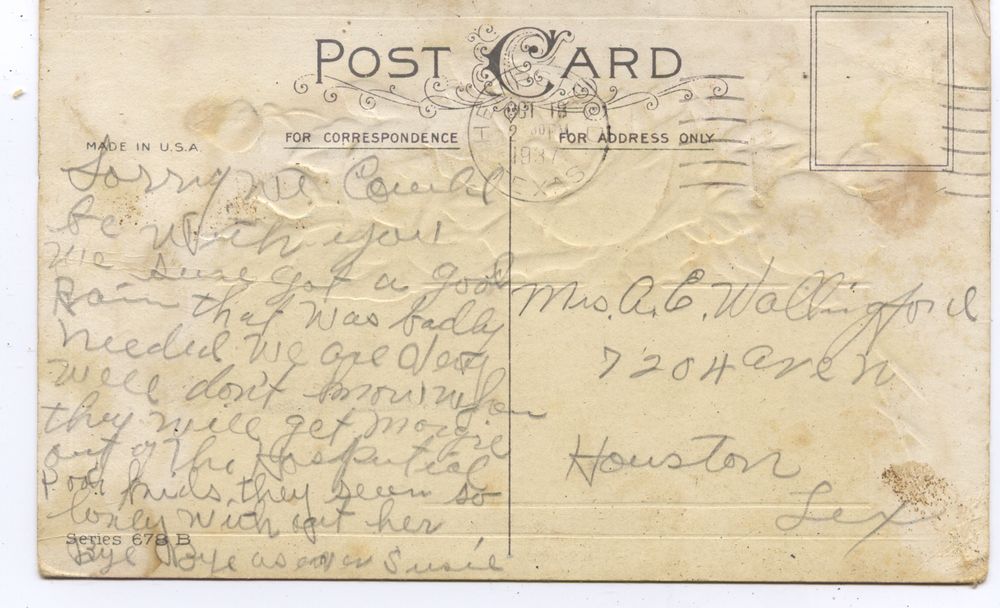 POST CARD
FOR CORRESPONDENCE
FOR ADDRESS ONLY
MADE IN U.S.A.
OCT 18
2
1937
TEXAS
Sorry we Could
be with you
We sure got a good
Rain that was badly
needed We are very
well don't know when
they will get Margie
out of the Hosputial
Poor kids, they seem so
lonly with out her
Bye Bye as ever Susie
Series 678 B
Mrs. A. E. Wallingford
7204 Ave N
Houston
Tex